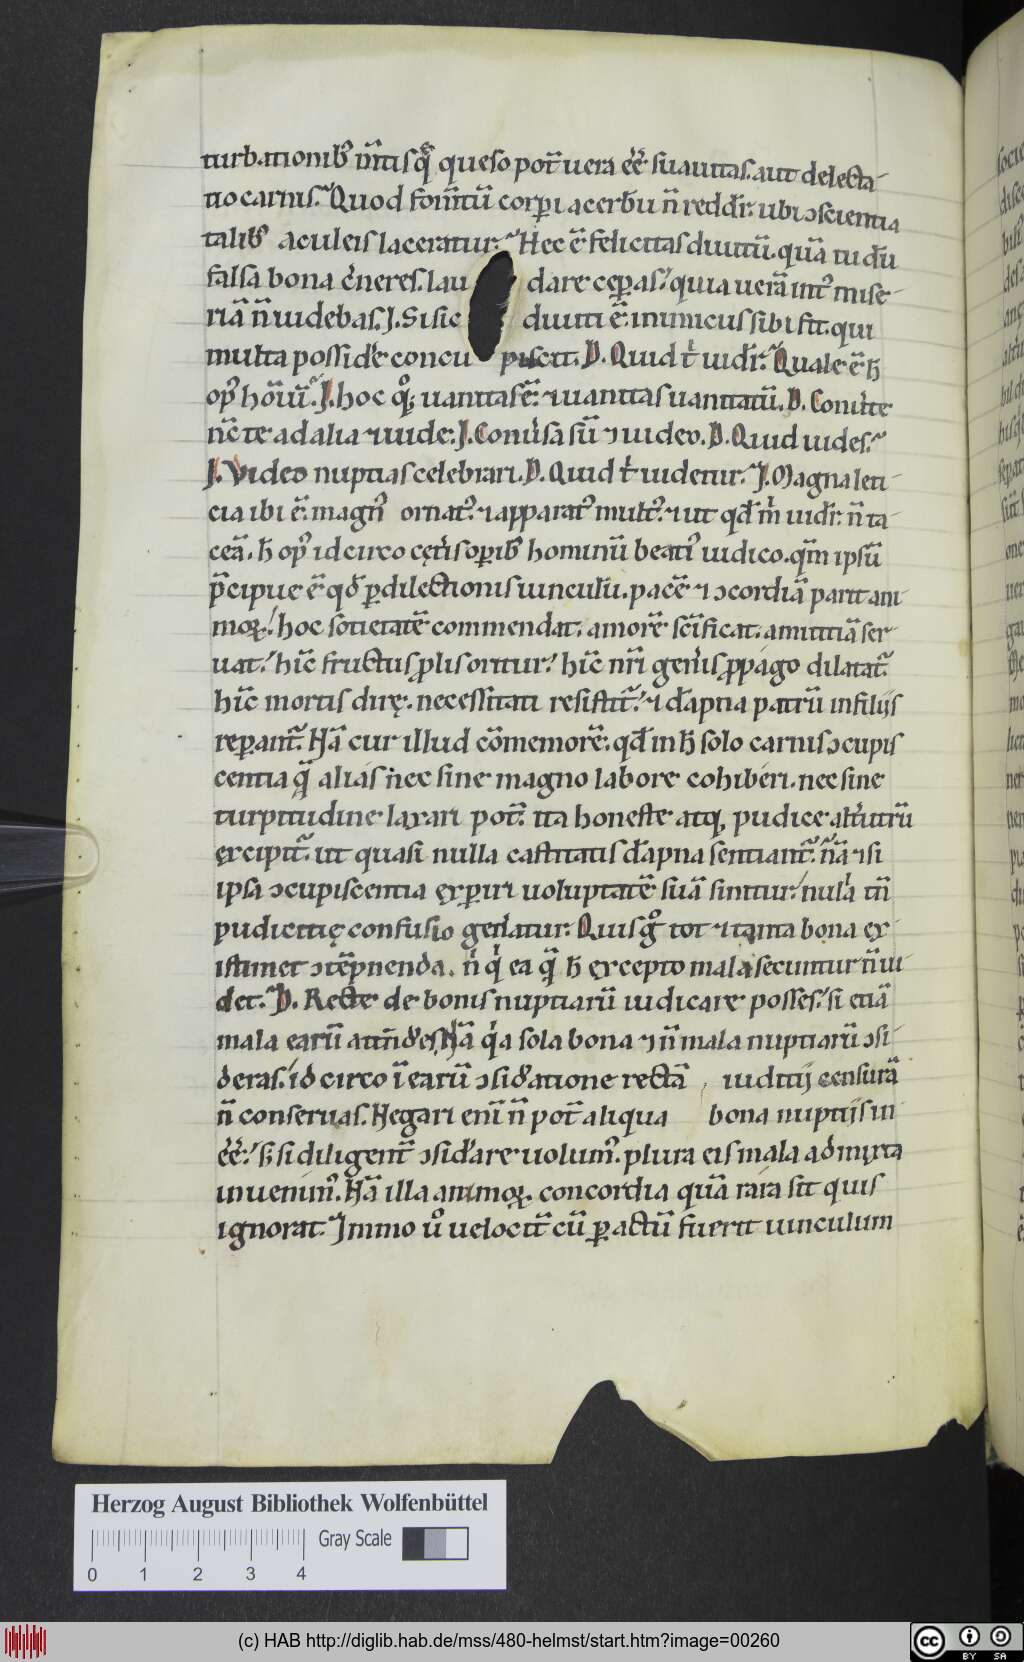 turbationib⁹ m̄tisq̄ queso pot̄ uera ēē suauitas. aut delecta-
tio carnis. Quod fom̄tū corp̄i acerbū n̄ redd̄r. ubi ɔscientia
talib⁹ aculeis laceratur. Hec ē felicitas diuitū. quā tu dūdū
falsa bona c̓neres. lau dare cep̄as. quia uerā int̓ mise-
riā n̄ uidebas. J. Si sic diuiti ē. inimicus sibi fit. qui
multa posside concu piscit. D. Quid t̓ uid̄r. Quale ē h̄
op⁹ hoīuū. J. hoc q̊q; uanitas ē. ⁊ uanitas uanitatū. D. Conu̓te
nc̄ te ad alia ⁊ uide. J. Conu̓sa sū ⁊ uideo. D. Quid uides.
J. Video nuptias celebrari. D. Quid t̓ uidetur. J. Magna leti-
cia ibi ē. magn⁹ ornat⁹. ⁊ apparat⁹ mult⁹. ⁊ ut qd̄ m̓ uid̄r n̄ ta-
ceā. h̄ op⁹ idcirco cęt̓is op̄ib⁹ hominū beati⁹ iudico. qm̄ ipsū
p̄cipue ē qd̄ ꝑ dilectionis uinculū. pacē ⁊ ɔcordiā parit ani-
moꝝ. hoc sotietatē commendat. amorē sc̄ificat. amititiā ser-
uat. hīc fructus ꝓlis oritur. hīc nr̄i gen̓is ꝓpago dilatat̄.
hīc mortis dirę. necessitati resistit̄. ⁊ d̄apna patrū in filijs
rep̄ant̄. Nā cur illud cōmemorē. qd̄ in h̄ solo carnis ɔcupis
centia q̄ alias nec sine magno labore cohiberi. nec sine
turpitudine laxari pot̄. ita honeste atq, pudice alt̓utrū
excipit̄. ut quasi nulla castitatis d̄apna sentiant̄. nā ⁊ si
ipsa ɔcupiscentia exꝑiri uoluptatē suā sinitur. nulla tn̄
pudicitię confusio gen̓atur. Quisq̊ tot ⁊ tanta bona ex-
istimet ɔtēpnenda. n̄ q̓ ea q̄ h̄ excepto mala secuntur n̄ ui-
det. D. Recte de bonis nuptiarū iudicare posses. si etiā
mala earū attn̄des. Nā q̓a sola bona ⁊ n̄ mala nuptiarū ɔsi-
deras. idcirco ī earū ɔsid̓atione rectā iuditij censurā
n̄ conseruas. Negari enī n̄ pot̄ aliqua bona nuptijs in
ēē. s; si diligent̄ ɔsid̓are uolum⁹. plura eis mala admixta
inuenim⁹. Nā illa animoꝝ concordia quā rara sit quis
ignorat. Immo ů uelocit̄ cū ꝑactū fuerit uinculum
Herzog August Bibliothek Wolfenbüttel
Gray Scale
0 1 2 3 4
(c) HAB http://diglib.hab.de/mss/480-helmst/start.htm?image=00260
cc BY SA